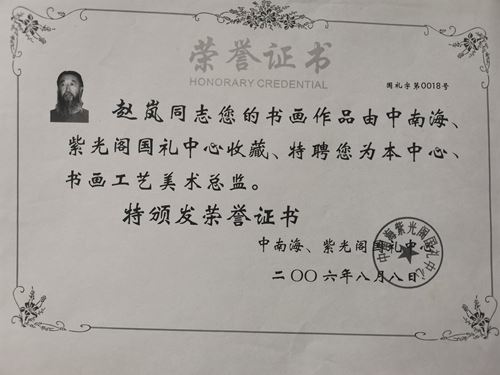 荣誉证书
HONORARY CREDENTIAL
国礼字第0018号
赵岚同志您的书画作品由中南海、
紫光阁国礼中心收藏、特聘您为本中心、
书画工艺美术总监。
特颁发荣誉证书
中南海、紫光阁国礼中心
二〇〇六年八月八日
中南海紫光阁国礼中心